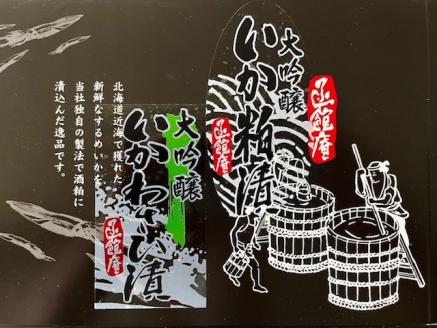 大吟醸
いか粕漬
函館庵
函館庵
大吟醸
いかわさび漬
函館庵
北海道近海で獲れた
新鮮なするめいかを
当社独自の製法で酒粕に
漬込んだ逸品です。